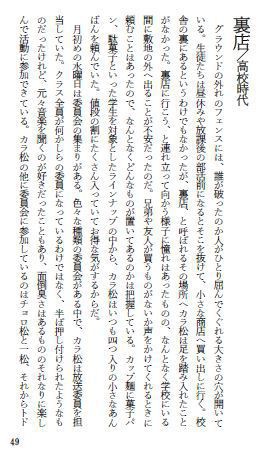 裏店／高校時代
グラウンドの外れのフェンスには、誰が破ったのか人がひとり屈んでくぐれる大きさの穴が開いて
いる。生徒たちは昼休みや放課後の部活前になるとそこを抜けて、小さな商店へ買い出しに行く。校
舎の裏にあるというわけでもなかったが、裏店、と呼ばれるその場所へカラ松は足を踏み入れたこと
がなかった。裏店に行こう、と連れ立って向かう様子に憧れはあったものの、なんとなく学校にいる
間に敷地の外へ出ることが不安だったのだ。兄弟や友人が買うものがないか声をかけてくれるときに
頼むことはあったので、なんとなくどんなものが置いてあるのかは把握している。カップ麺に菓子パ
ン、駄菓子といった学生を対象としたラインナップの中から、カラ松はいつも四つ入りの小さなあん
ぱんを頼んでいた。値段の割にたくさん入っていてお得な気がするからだ。
月初めの水曜日は委員会の集まりがある。色々な種類の委員会がある中で、カラ松は放送委員を担
当していた。クラス全員が何かしらの委員になっているわけではなく、半ば押し付けられたようなも
のだったけれど、元々音楽を聞くのが好きだったこともあり、面倒臭さはあるもののそれなりに楽し
んで活動に参加できている。カラ松の他に委員会に参加しているのはチョロ松と一松、それからトド
49